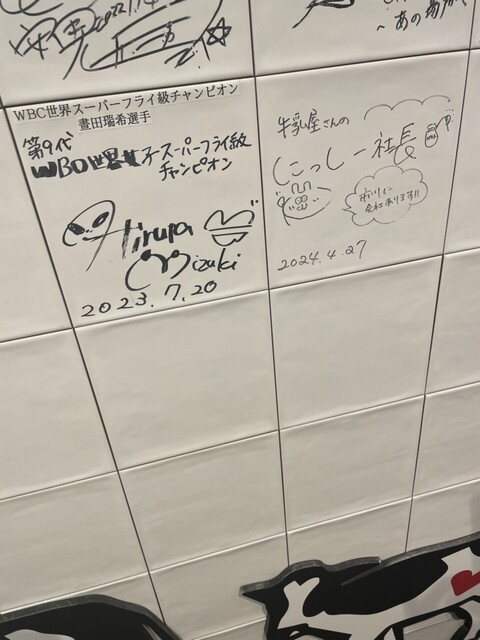 2022.1.14
～あの場所
WBC世界スーパーフライ級チャンピオン
晝田瑞希選手
第9代
WBO世界女子スーパーフライ級
チャンピオン
Hiruta
Mizuki
2023.7.20
牛乳屋さんの
こっしー社長
会社あります!!
2024.4.27